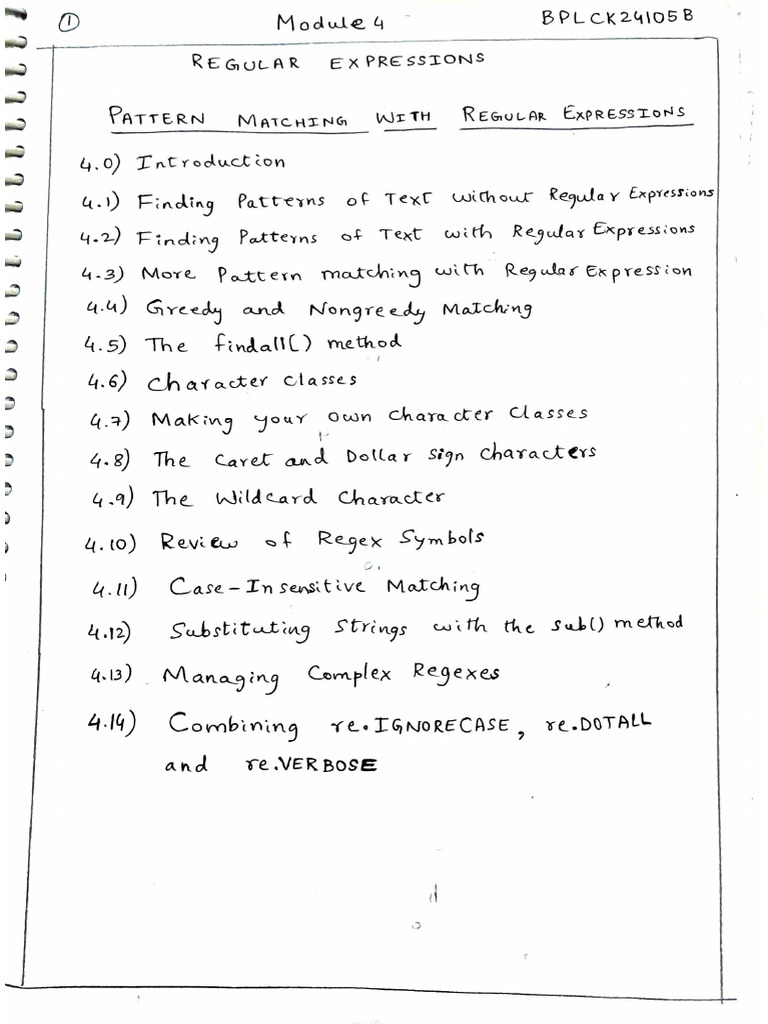 1 Module 4 BPLCK24105B
REGULAR EXPRESSIONS
PATTERN MATCHING WITH REGULAR EXPRESSIONS
4.0) Introduction
4.1) Finding Patterns of Text without Regular Expressions
4.2) Finding Patterns of Text with Regular Expressions
4.3) More Pattern matching with Regular Expression
4.4) Greedy and Nongreedy Matching
4.5) The findall() method
4.6) Character Classes
4.7) Making your own Character Classes
4.8) The Caret and Dollar Sign Characters
4.9) The Wildcard Character
4.10) Review of Regex Symbols
4.11) Case-Insensitive Matching
4.12) Substituting Strings with the sub() method
4.13) Managing Complex Regexes
4.14) Combining re.IGNORECASE, re.DOTALL
and re.VERBOSE